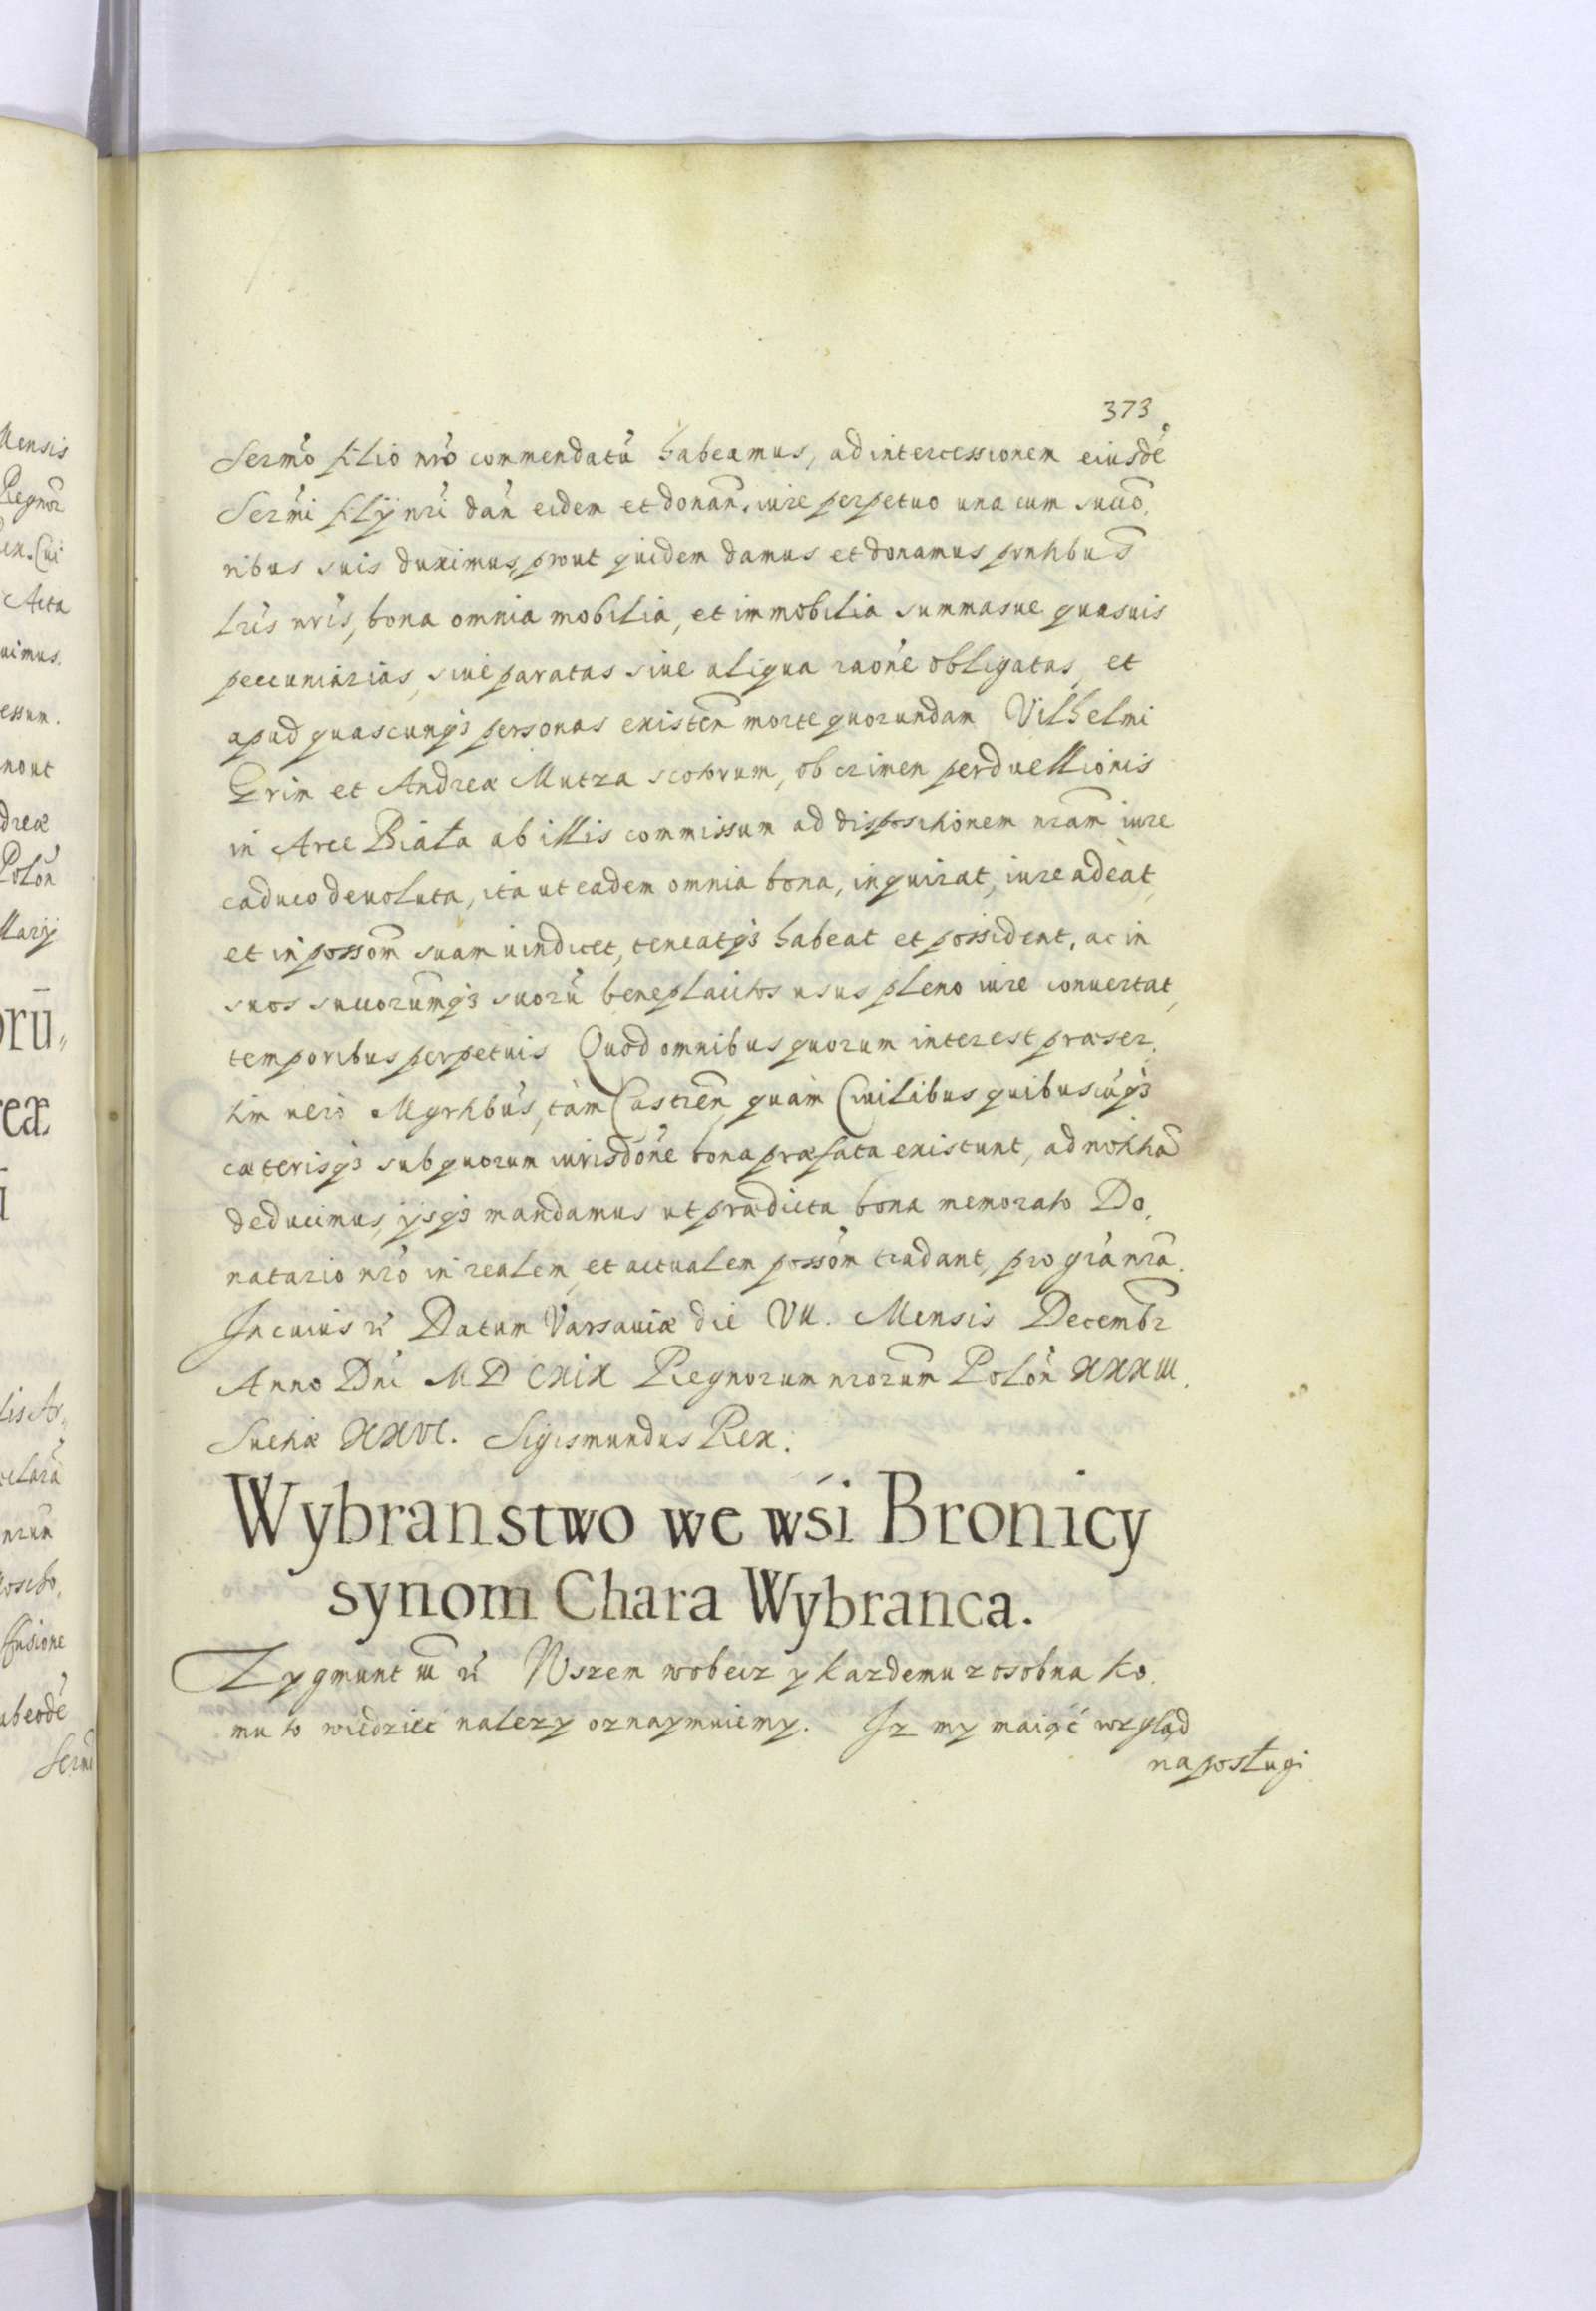 373
Serm̃o filio nr̃o commendatũ habeamus, ad intercessionem eiusdẽ
Serm̃i filÿ nr̃i dañ eidem et donañ. iure perpetuo una cum succõ,
ribus suis duximus, prout quidem damus et donamus pr̃ntibus
lr̃is nr̃is, bona omnia mobilia, et immobilia summasue quasuis
peccuniarias, siue paratas siue aliqua raõne obligatas, et
apud quascunqȝ personas existeñ morte quorundam Vilhelmi
Grim et Andreæ Mutza scotorum, ob crimen perduellionis
in Arce Biała ab illis commissum ad dispositionem nr̃am iure
caduco deuoluta, ita ut eadem omnia bona, inquirat, iure adeat,
et in possõm suam uindicet, teneatqȝ habeat et possideat, ac in
suos succorum̃qȝ suorũ beneplacitos usus pleno iure conuertat,
temporibus perpetuis Quod omnibus quorum interest præser,
tim uero Mgr̃tibus, tàm Castreñ, quàm Ciuilibus quibuscũqȝ
cæterisqȝ sub quorum iurisdõne bona præfata existunt, ad notitiã
deducimus, ijsqȝ mandamus ut prædicta bona memorato Do,
natario nr̃o in realem et actualem possõm tradant, pro grã nr̃ã.
In cuius rẽ Datum Varsauiæ die VII. Mensis Decemb̃r
Anno Dñi MDCXIX Regnorum nr̃orum Poloñ XXXIII.
Suetiæ XXVI. Sigismundus Rex.
Wybranstwo we wśi Bronicy
synom Chara Wybranca.
Zygmunt III rẽ Wszem wobecz y kazdemu z osobna ko,
mu to wiedzieć nalezy oznaymuiemy. Iz my maiąć wzgląd
na posługi
Mensis
Regnor̃
Cui
Acta
uimus.
essum.
dreæ
Poloñ
llarij
orũ,
reæ
lis Ar,
nr̃um
ffusione
ab eodẽ
Serm̃